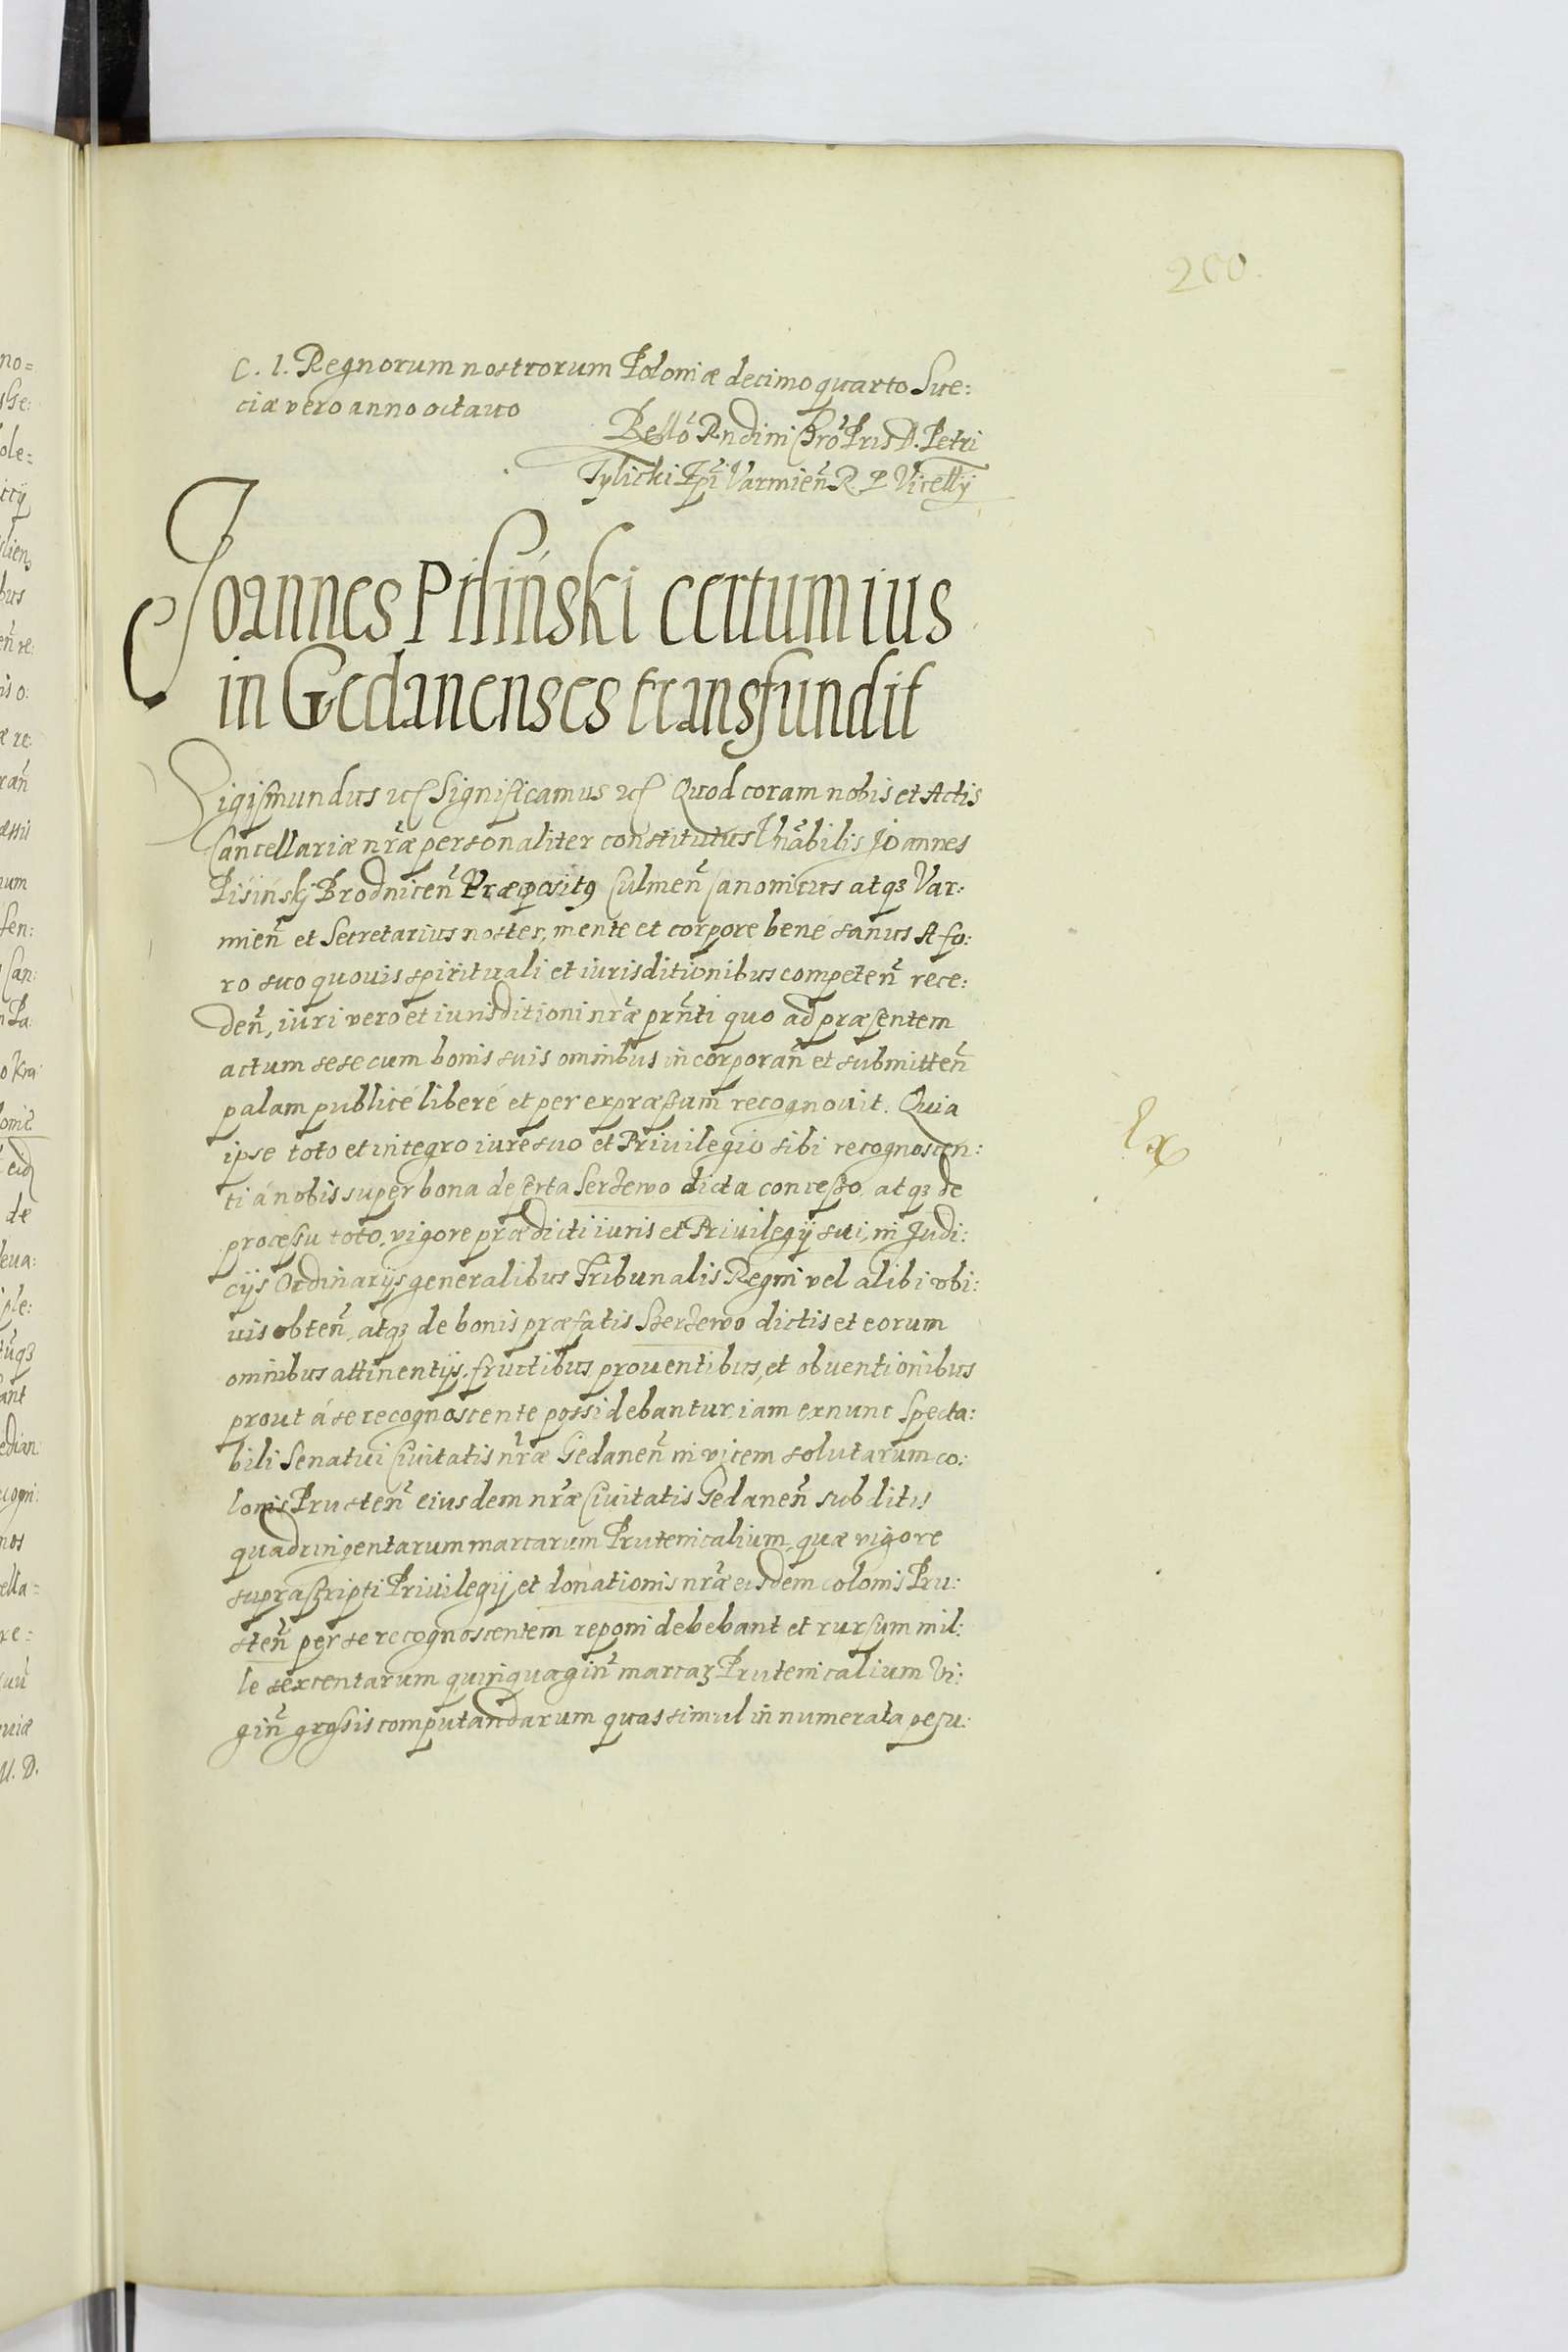 200.
C. I. Regnorum nostrorum Poloniæ decimo quarto Sue:
ciæ vero anno octauo
Rello Rndini Chro Pris D. Petri
Tylicki Epi Varmien R P Vicelly
Joannes Pisiński certum ius
in Gedanenses transfundit
Sigismundus etc Significamus etc Quod coram nobis et Actis
Cancellariæ nræ personaliter constitutus Vnabilis Joannes
Pisiński Brodnicen Præposit9 Culmen Canonicus atq3 Var:
mien et Secretarius noster, mente et corpore bené sanus A fo:
ro suo quouis spirituali et iurisditionibus competen rece:
den, iuri vero et iurisditioni nræ prnti quo ad præsentem
actum sese cum bonis suis omnibus incorporan et submitten
palam publicé liberé et per expræssum recognouit. Quia
ipse toto et integro iure suo et Priuilegio sibi recognoscen:
ti á nobis super bona deserta Serzewo dicta concesso atq3 de
processu toto, vigore prædicti iuris et Priuilegij sui, in Judi:
cijs Ordinarijs generalibus Tribunalis Regni vel alibi vbi:
uis obten, atq3 de bonis præfatis Szerzewo dictis et eorum
omnibus attinentijs, fructibus prouentibus, et obuentionibus
prout á se recognoscente possidebantur, iam ex nunc Specta:
bili Senatui Ciuitatis nræ Gedanen in vicem solutarum co:
lonis Prusten eiusdem nræ Ciuitatis Gedanen subditis
quadringentarum marcarum Prutenicalium, quæ vigore
suprascripti Priuilegij et donationis nræ eisdem colonis Pru:
sten per se recognoscentem reponi debebant et rursum mil:
le sexcentarum quinquagin marcar3 Prutenicalium Vi:
gin grossis computandarum quas simul in numerata pecu:
Ex